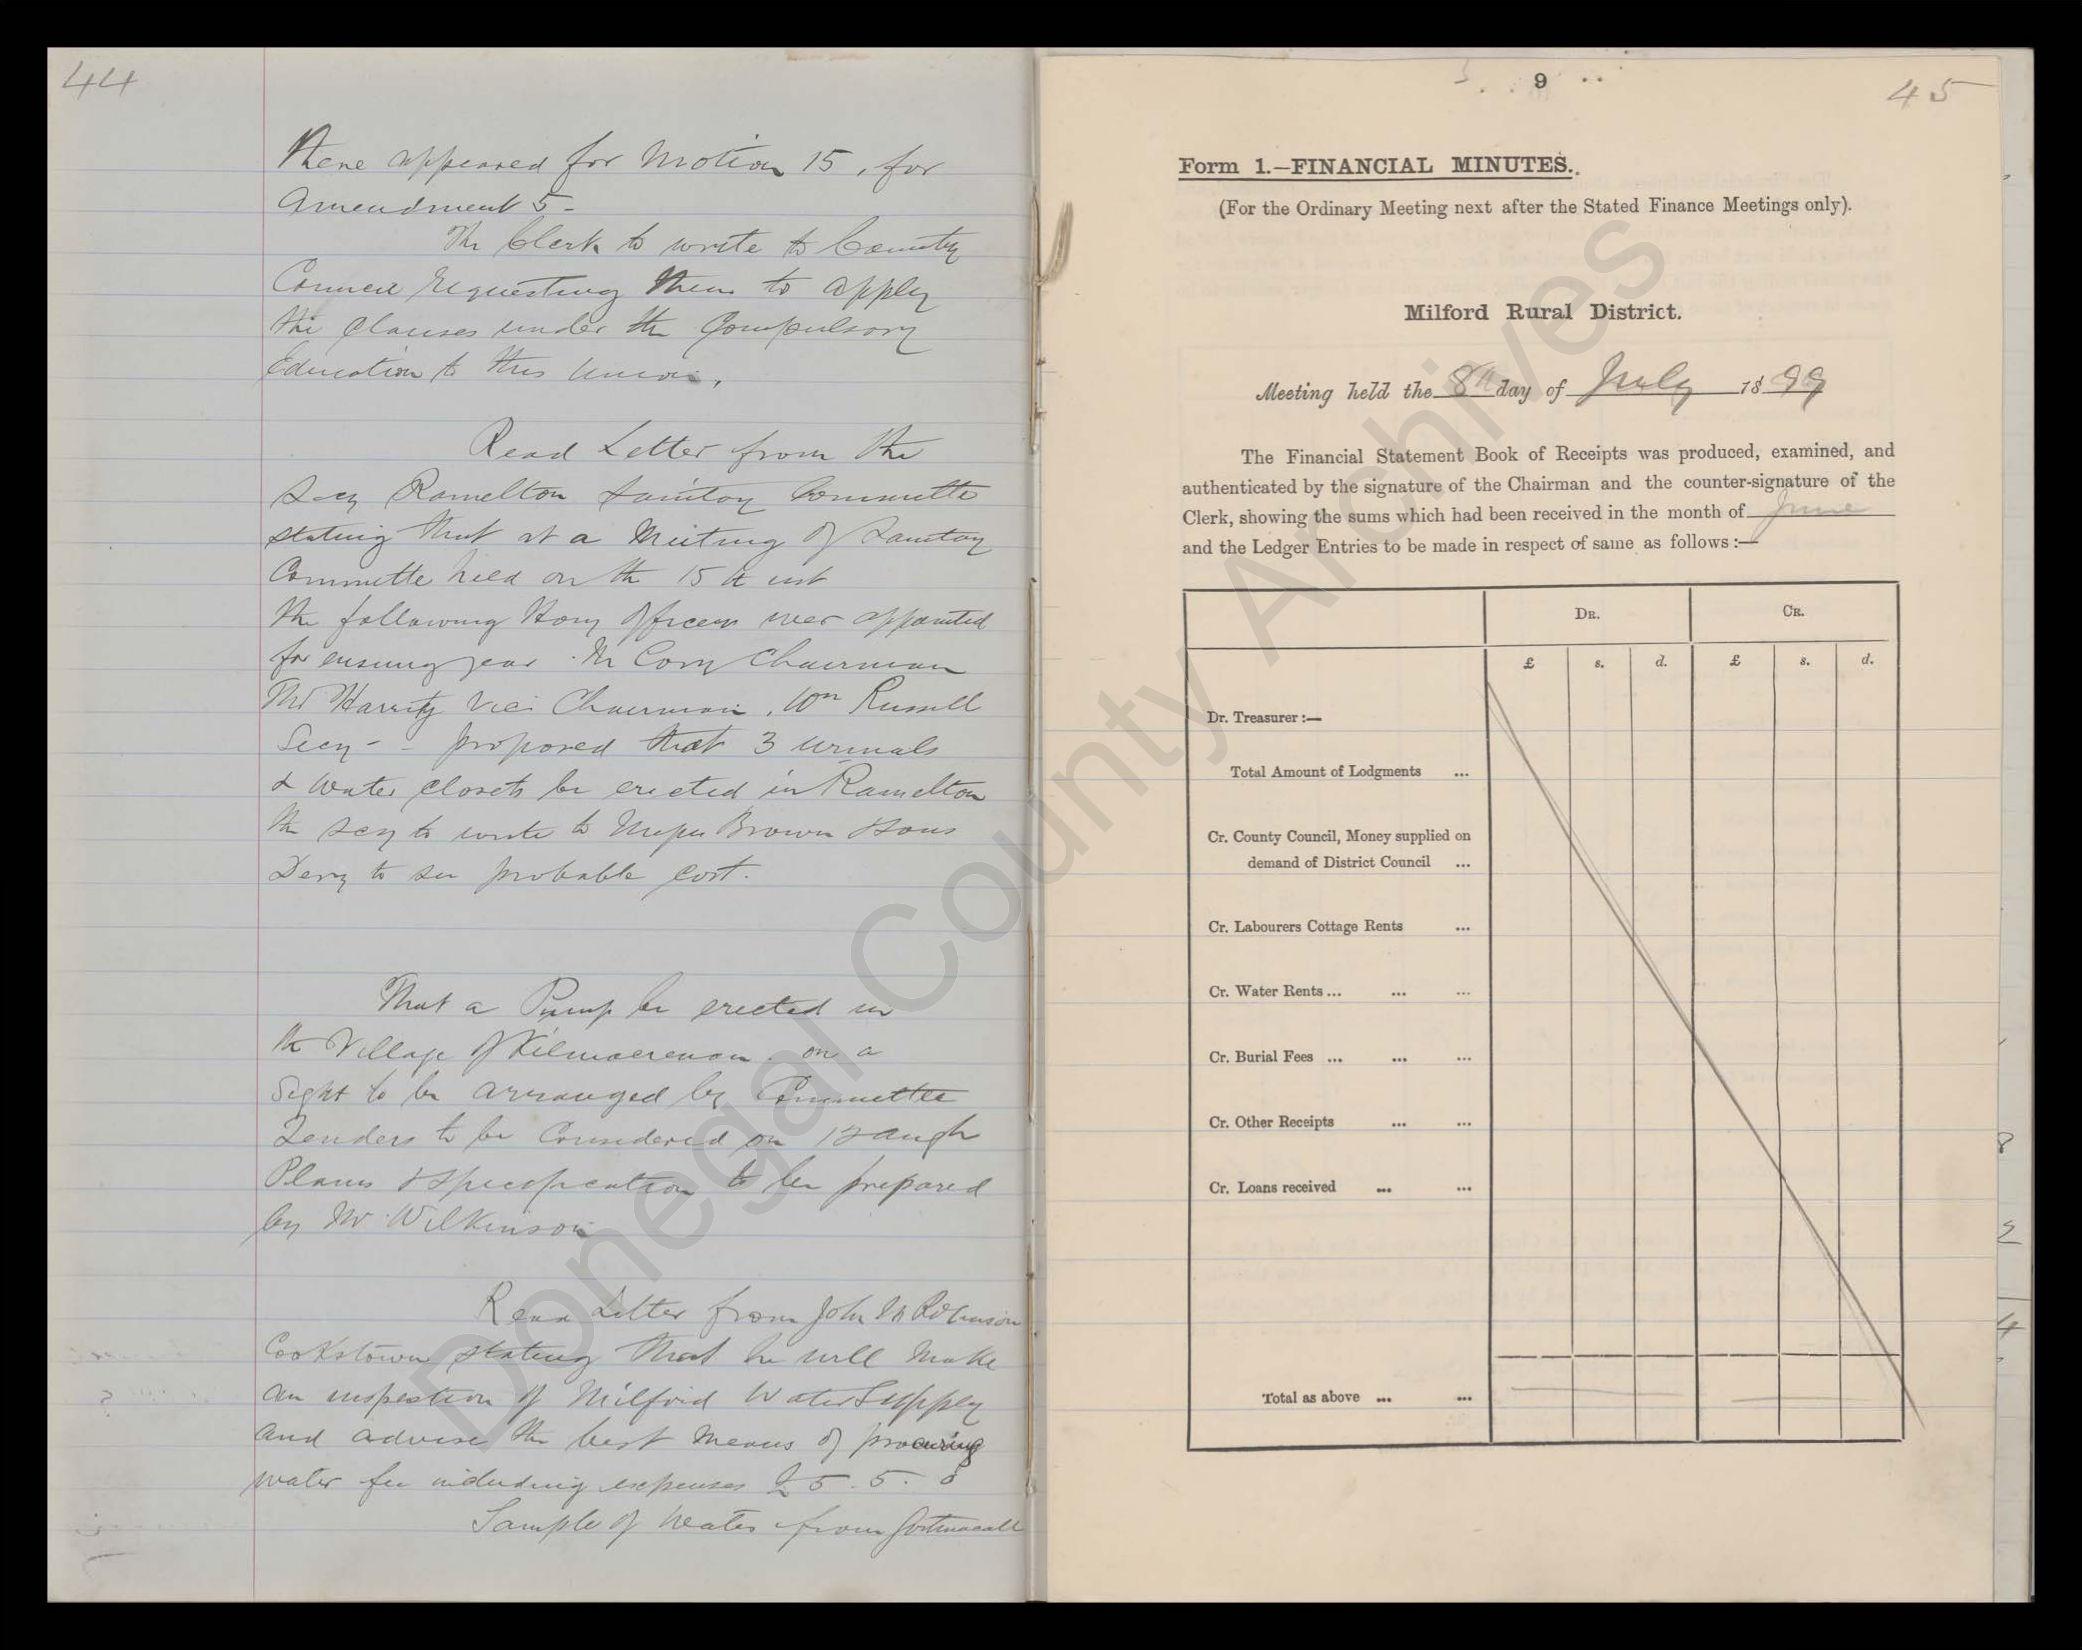 44
there appeared for Motion 15, for
Amendment 5-
The Clerk to write to County
Council requesting them to apply
the Clauses under the Compulsory
Education to this Union.
Read Letter from the
Secy Ramelton Sanitary Committe
stating that at a Meeting of Sanitary
Committe held on the 15th inst
the following Hony Officers wer appointed
for ensuing year. Mr Corry Chairman
Mr Harrity Vice Chairman. Wm Russell
Secy - - proposed that 3 urinals
& water closets be erected in Ramelton
the Secy to write to Messrs Brown & Sons
Derry to see probable cost.
That a Pump be erected in
the Village of Kilmacrenan on a
Sight to be arranged by Committee
Tenders to be Considered on 12 Augst
Plans & Specification to be prepared
by Mr Wilkinson
Read Letter from John Robinson
Cookstown stating that he will make
an inspection of Milford Water Supply
and advise the best means of procuring
water fee including expenses £5. 5. 0
Sample of Water from
9
45
Form 1.—FINANCIAL MINUTES.
(For the Ordinary Meeting next after the Stated Finance Meetings only).
Milford Rural District.
Meeting held the 8th day of July 1899
The Financial Statement Book of Receipts was produced, examined, and
authenticated by the signature of the Chairman and the counter-signature of the
Clerk, showing the sums which had been received in the month of June
and the Ledger Entries to be made in respect of same as follows :—
DR. CR.
£ s. d. £ s. d.
Dr. Treasurer :—
Total Amount of Lodgments ...
Cr. County Council, Money supplied on
demand of District Council ...
Cr. Labourers Cottage Rents ...
Cr. Water Rents ... ... ...
Cr. Burial Fees ... ... ...
Cr. Other Receipts ... ...
Cr. Loans received ... ...
Total as above ... ...
Donegal County Archives